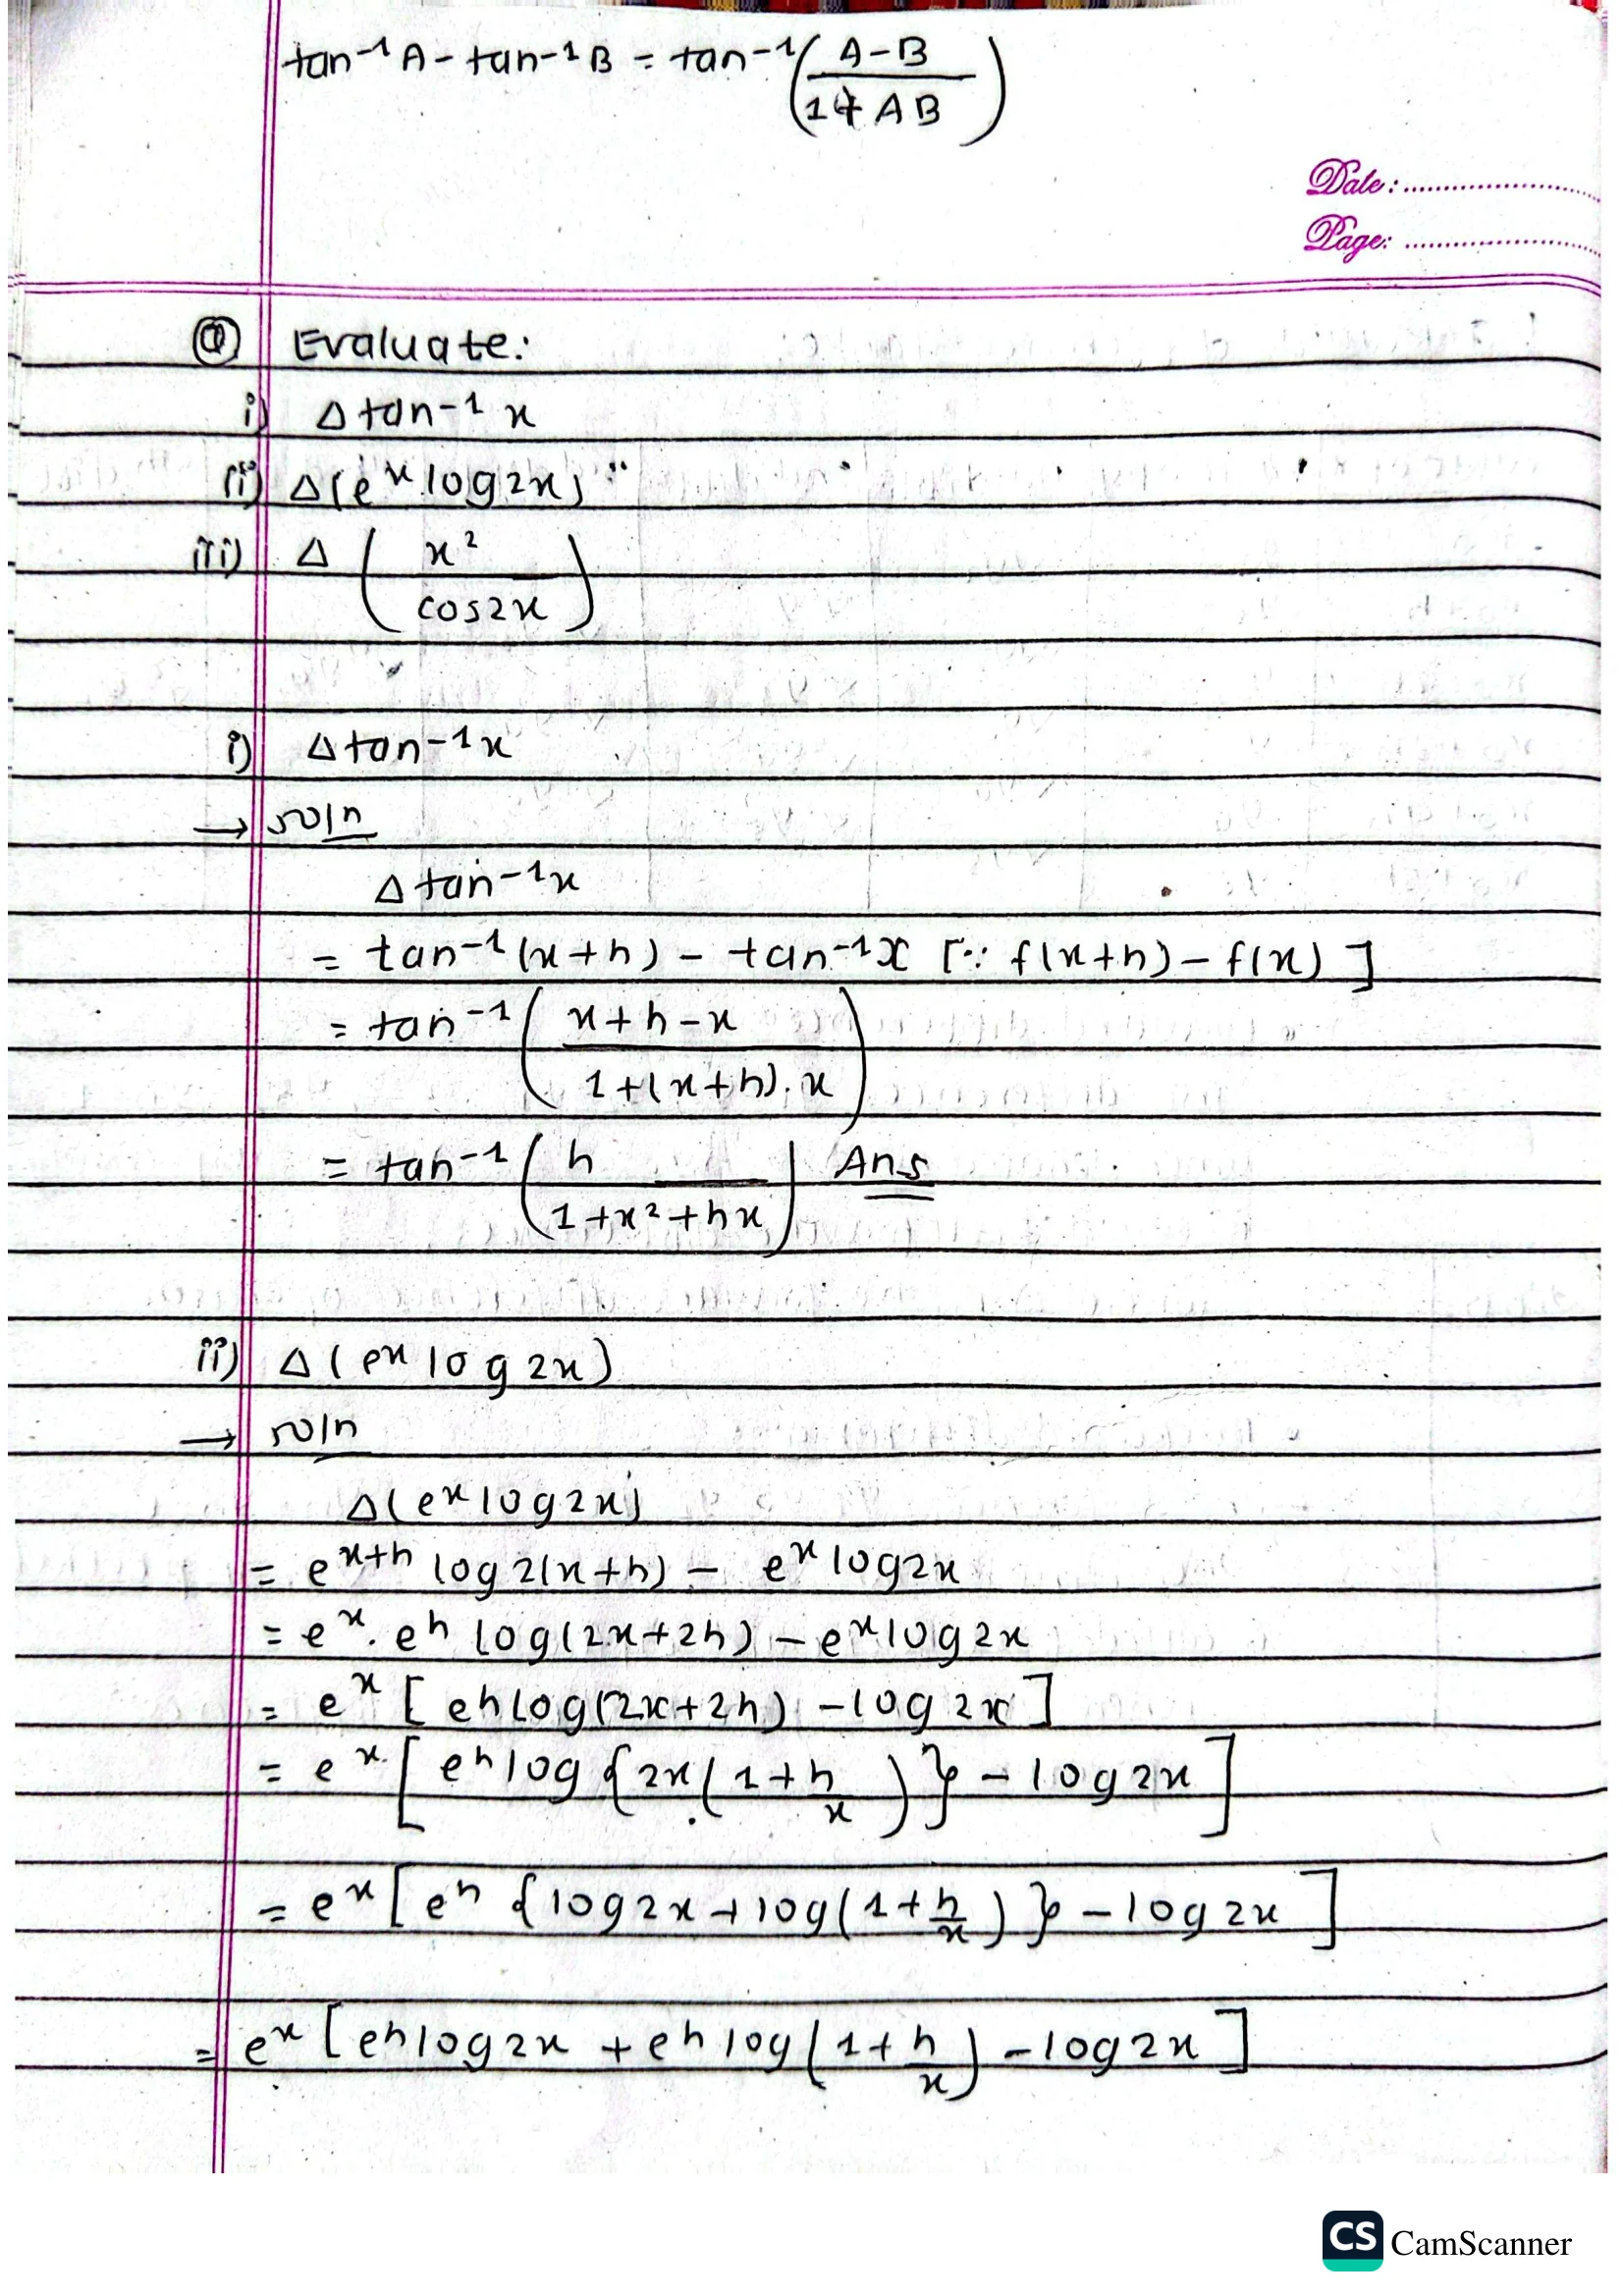 tan⁻¹A - tan⁻¹B = tan⁻¹(A-B / 1+AB)
Date: ....................
Page: ....................
Q Evaluate:
i) Δ tan⁻¹ x
ii) Δ(eˣ log2x)
iii) Δ (x² / cos2x)
i) Δ tan⁻¹x
→ soln
Δ tan⁻¹x
= tan⁻¹(x+h) - tan⁻¹x [∵ f(x+h) - f(x)]
= tan⁻¹(x+h-x / 1+(x+h).x)
= tan⁻¹(h / 1+x²+hx) Ans
ii) Δ(eˣ log2x)
→ soln
Δ(eˣ log2x)
= eˣ⁺ʰ log2(x+h) - eˣ log2x
= eˣ. eʰ log(2x+2h) - eˣ log2x
= eˣ [eʰ log(2x+2h) - log2x]
= eˣ [eʰ log {2x(1+h/x)} - log2x]
= eˣ [eʰ {log2x + log(1+h/x)} - log2x]
= eˣ [eʰ log2x + eʰ log(1+h/x) - log2x]
CS CamScanner